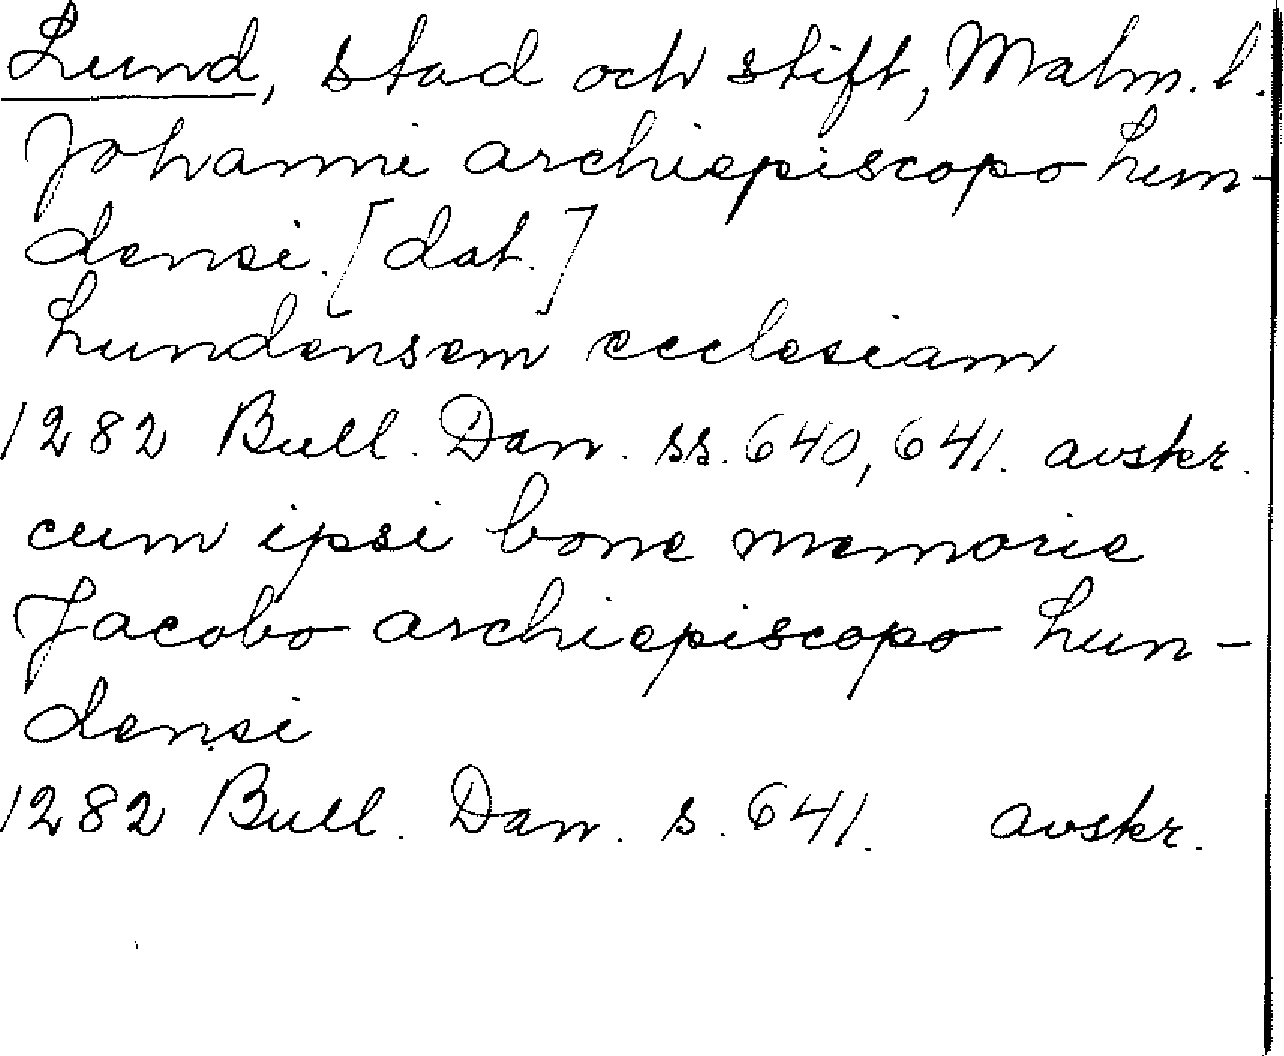 Lund, stad och stift, Malm. l.
Johanni archiepiscopo Lun-
densi. [dat.]
Lundensem ecclesiam
1282 Bull. Dan. ss. 640, 641. avskr.
cum ipsi bone memorie
Jacobo archiepiscopo Lun-
densi
1282 Bull. Dan. s. 641. avskr.